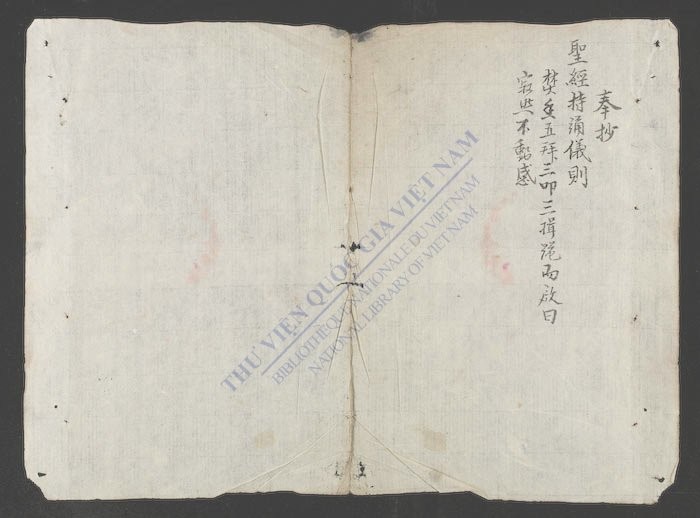 奉抄
聖經持誦儀則
焚香五拜三叩三揖跪而啟曰
寂然不動感
THƯ VIỆN QUỐC GIA VIỆT NAM
BIBLIOTHÈQUE NATIONALE DU VIETNAM
NATIONAL LIBRARY OF VIETNAM